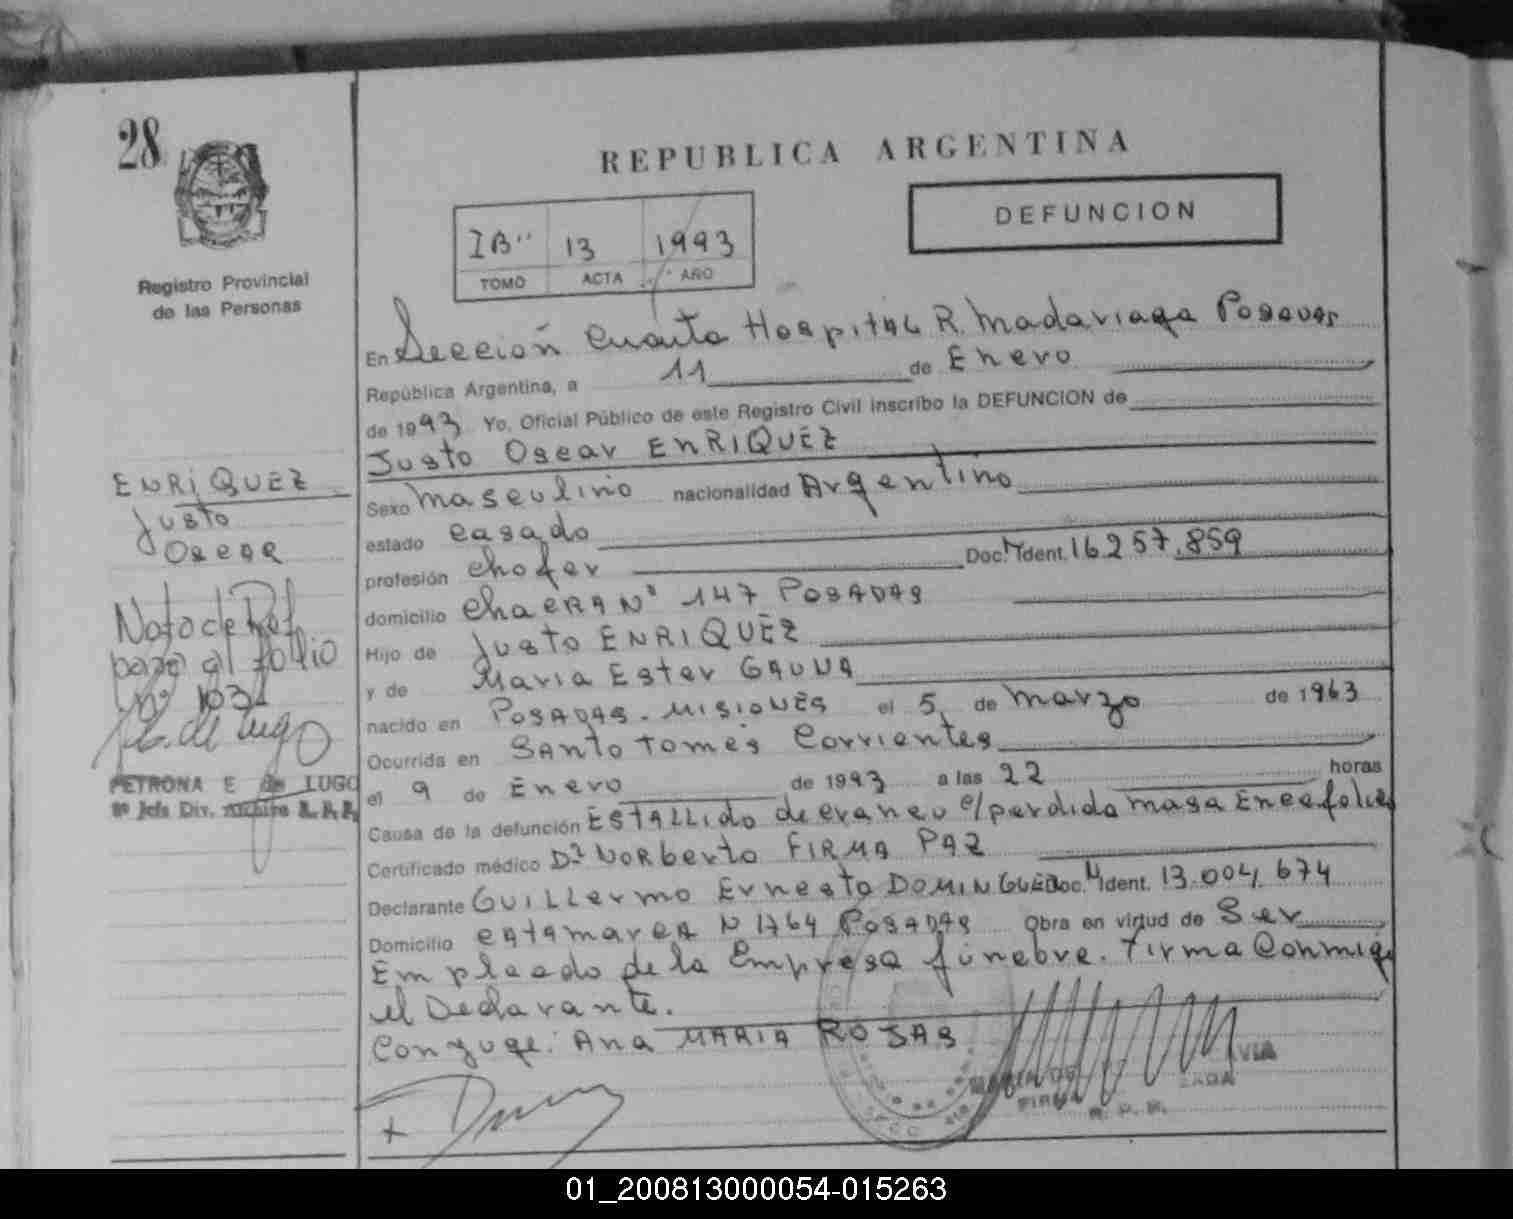 28
REPUBLICA ARGENTINA
DEFUNCION
IB" 13 1993
TOMO ACTA AÑO
Registro Provincial
de las Personas
En Sección Cuarta Hospital R. Madariaga Posadas
República Argentina, a 11 de Enero
de 1993 Yo, Oficial Público de este Registro Civil inscribo la DEFUNCION de
Justo Oscar ENRIQUEZ
Sexo masculino nacionalidad Argentino
estado casado
profesión chofer Doc. Ident. 16.257.859
domicilio Chacra N° 147 POSADAS
Hijo de Justo ENRIQUEZ
y de Maria Ester GAUNA
nacido en POSADAS - MISIONES el 5 de marzo de 1963
Ocurrida en Santo Tomés Corrientes
el 9 de Enero de 1993 a las 22 horas
Causa de la defunción Estallido de craneo c/perdida masa
Certificado médico Dr Norberto FIRMA PAZ
Declarante Guillermo Ernesto DOMINGUE Doc. M Ident. 13.004.674
Domicilio Catamarca N 1764 POSADAS Obra en virtud de Ser
Empleado de la Empresa fúnebre. Firma Conmigo
el Declarante.
Conyuge: Ana MARIA ROJAS
ENRIQUEZ
Justo
Oscar
Nota de Ref.
pase al folio
Nº 1031
PETRONA E de LUGO
Jefe Div. Archivo R.P.P.
MARIA DE VIA
FIRMA
R. P. P.
01_200813000054-015263